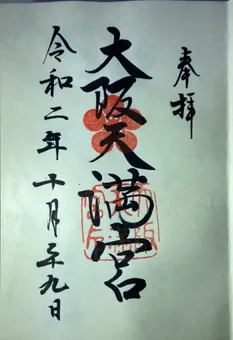 奉拝
大阪天満宮
令和二年十月二十九日